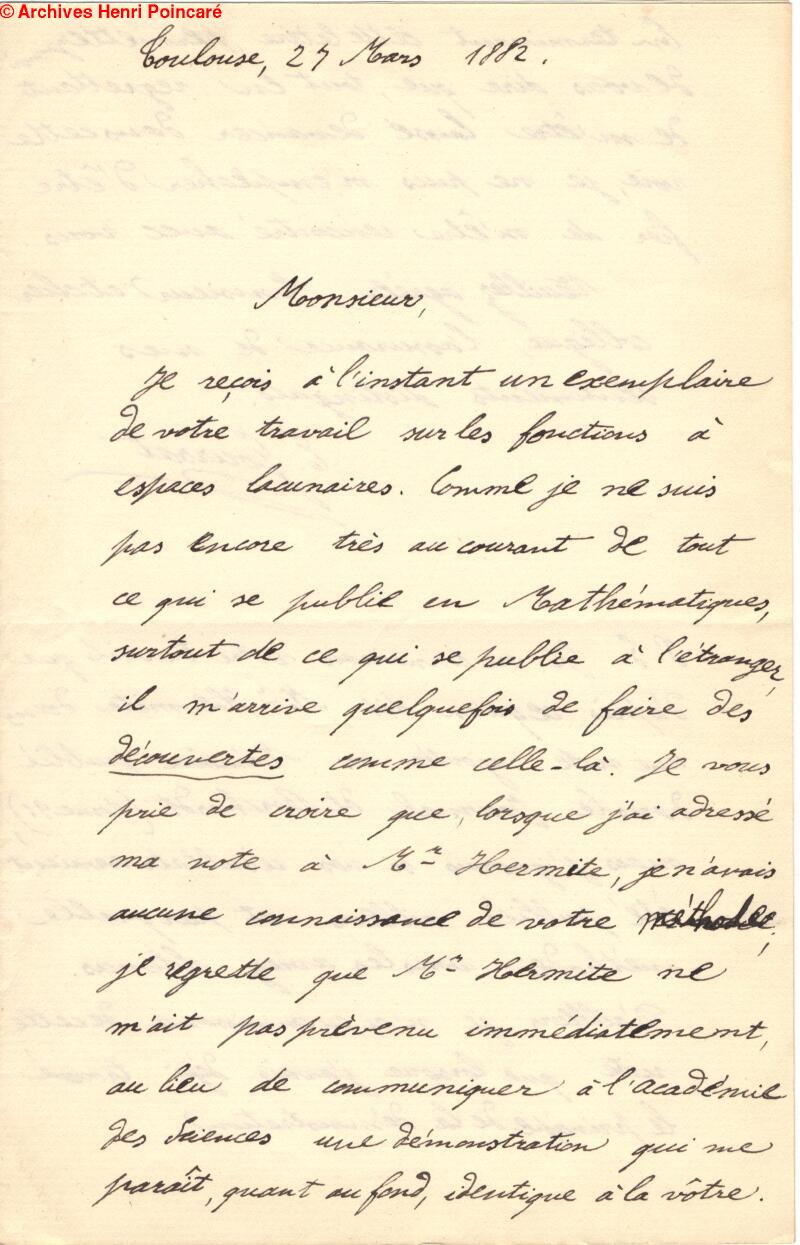 © Archives Henri Poincaré
Toulouse, 27 Mars 1882.
Monsieur,
Je reçois à l'instant un exemplaire
de votre travail sur les fonctions à
espaces lacunaires. Comme je ne suis
pas encore très au courant de tout
ce qui se publie en Mathématiques,
surtout de ce qui se publie à l'étranger,
il m'arrive quelquefois de faire des
découvertes comme celle-là. Je vous
prie de croire que, lorsque j'ai adressé
ma note à Mr Hermite, je n'avais
aucune connaissance de votre méthode;
je regrette que Mr Hermite ne
m'ait pas prévenu immédiatement,
au lieu de communiquer à l'Académie
des Sciences une démonstration qui me
paraît, quant au fond, identique à la vôtre.